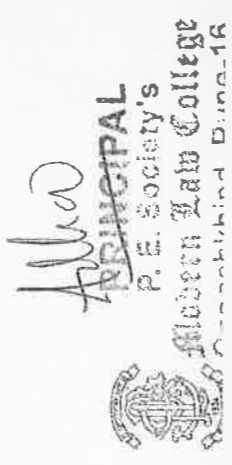 PRINCIPAL
P. E. Society's
Modern Law College
Ganeshkhind, Pune-16